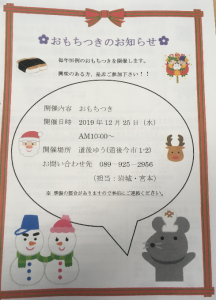 ✿おもちつきのお知らせ✿
毎年恒例のおもちつきを開催します。
興味のある方、是非ご参加下さい！！
開催内容　おもちつき
開催日時　2019年12月25日（水）
AM10:00～
開催場所　道後ゆう(道後今市1-2)
お問い合わせ先　089-925-2956
（担当：岩城・宮本）
※ 準備の都合がありますので事前にご連絡ください。